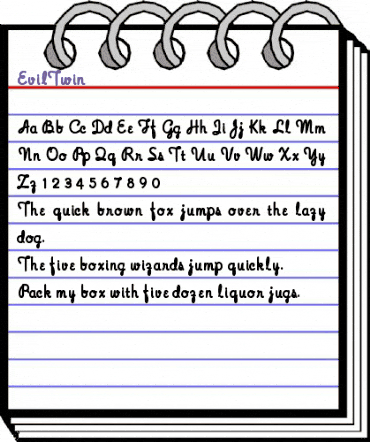 EvilTwin
Aa Bb Cc Dd Ee Ff Gg Hh Ii Jj Kk Ll Mm
Nn Oo Pp Qq Rr Ss Tt Uu Vv Ww Xx Yy
Zz 1 2 3 4 5 6 7 8 9 0
The quick brown fox jumps over the lazy
dog.
The five boxing wizards jump quickly.
Pack my box with five dozen liquor jugs.